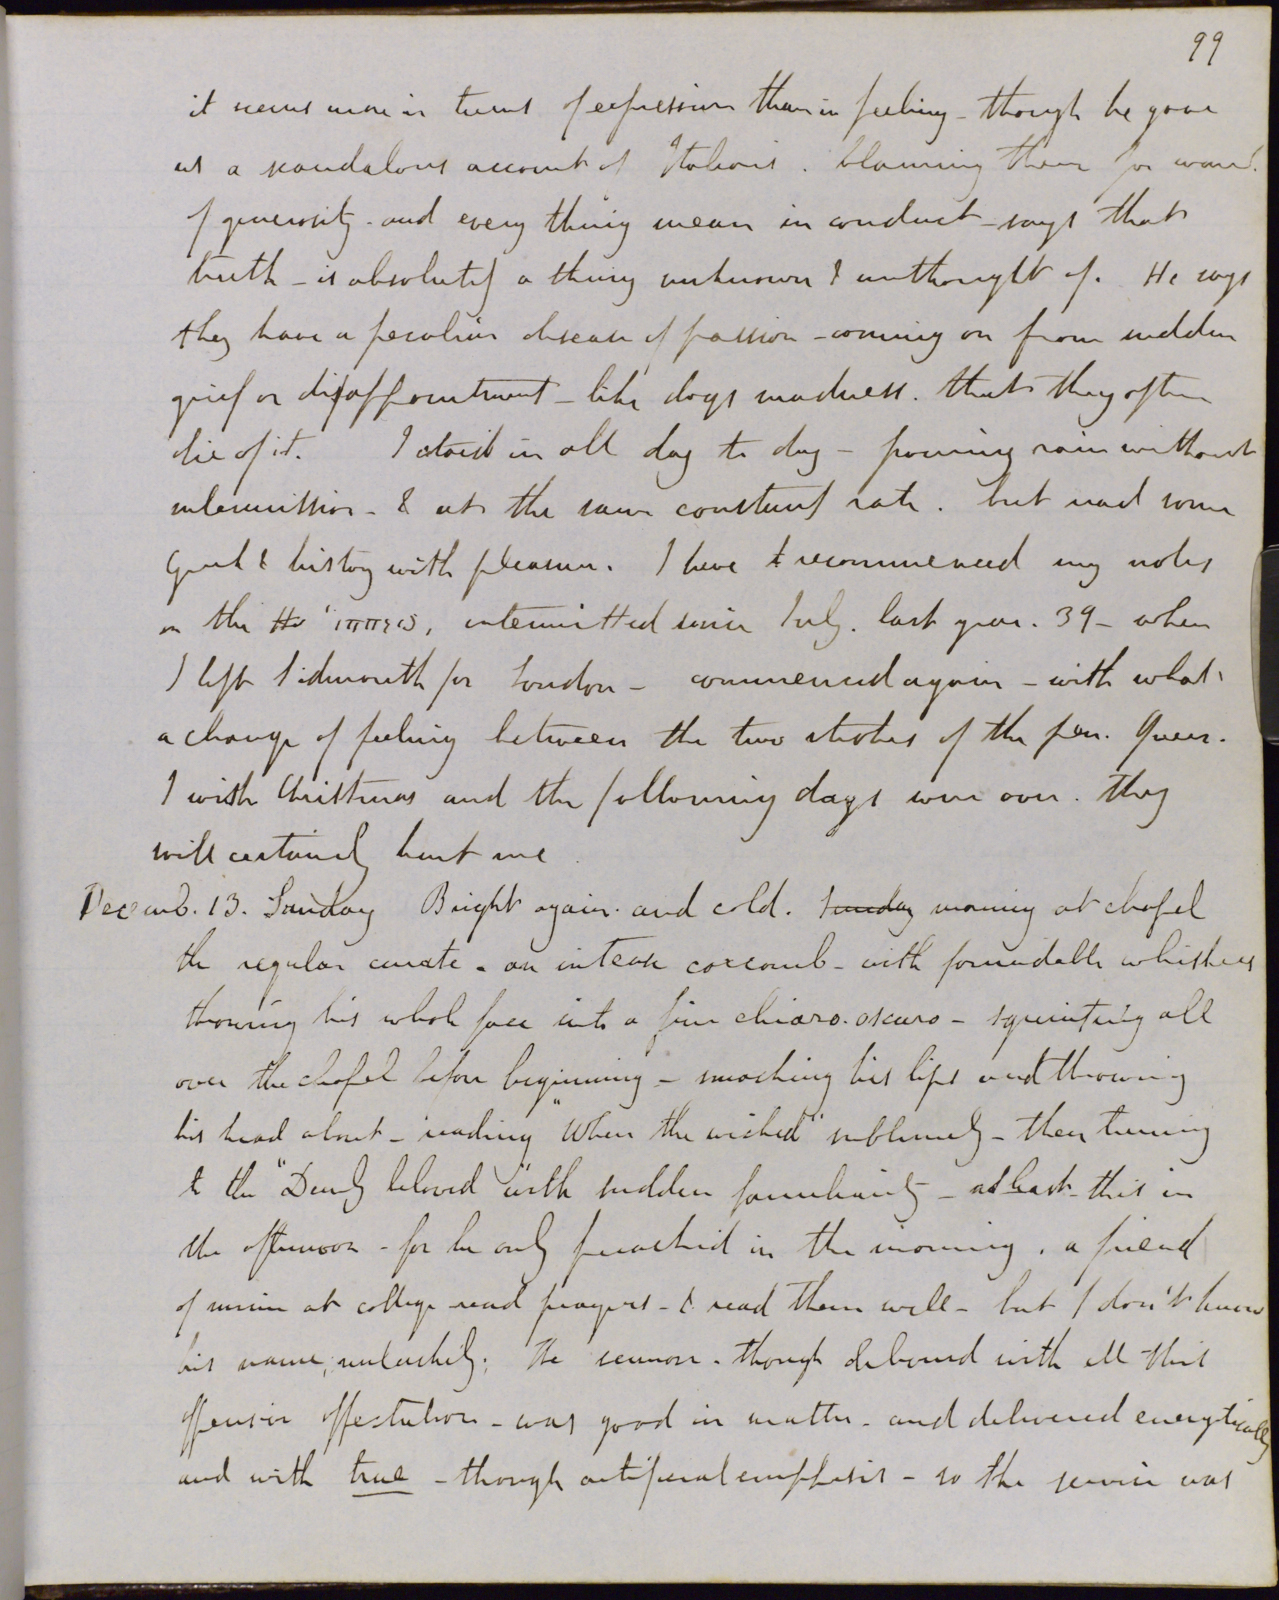 99
it seems more in turns of expression than in feeling - though he gave
us a scandalous account of Italians. blaming them for want.
of generosity - and every thing mean in conduct - says that
truth - is absolutely a thing unknown & unthought of. He says
they have a peculiar disease of passion - coming on from sudden
grief or disappointment - like dogs madness. that they often
die of it. I staid in all day to day - pouring rain without
intermission - & at the same constant rate. but read some
Greek & history with pleasure. I have recommenced my notes
on the Ἱππεις, intermitted since July. last year. 39 - when
I left Sidmouth for London - commenced again - with what
a change of feeling between the two strokes of the pen. Queer.
I wish Christmas and the following days were over. they
will certainly hurt me
Decemb. 13. Sunday Bright again. and cold. Sunday morning at chapel
the regular curate - an intense coxcomb - with formidable whiskers
throwing his whole face into a fine chiaro-oscuro - squinting all
over the chapel before beginning - smacking his lips and throwing
his head about - reading "When the wicked" sublimely - then turning
to the "Dearly beloved" with sudden familiarity - at least this in
the afternoon - for he only preached in the morning. a friend
of mine at college read prayers - & read them well - but I don't know
his name, unluckily; The sermon - though debased with all this
offensive affectation - was good in matter - and delivered energetically
and with true - though artificial emphasis - so the service was